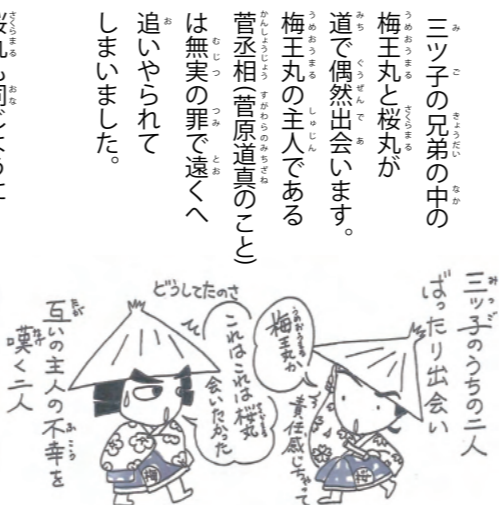 三ツ子の兄弟の中の
梅王丸と桜丸が
道で偶然出会います。
梅王丸の主人である
菅丞相(菅原道真のこと)
は無実の罪で遠くへ
追いやられて
しまいました。
三ツ子のうちの二人
ばったり出会い
梅王丸か
責任感じちゃって
これはこれは桜丸
会いたかった
どうしてたのさ
互いの主人の不幸を
嘆く二人
梅
桜